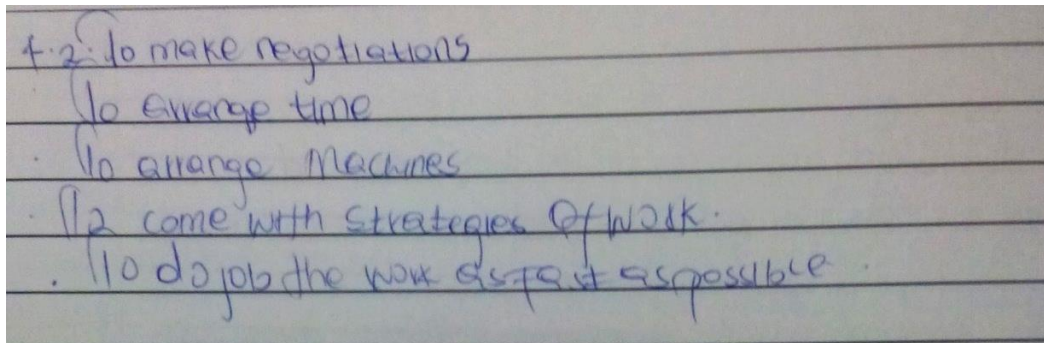 4.2. To make negotiations
To arrange time
. To arrange Machines
. To come with strategies Of Work.
. To do job the work as fast as possible.